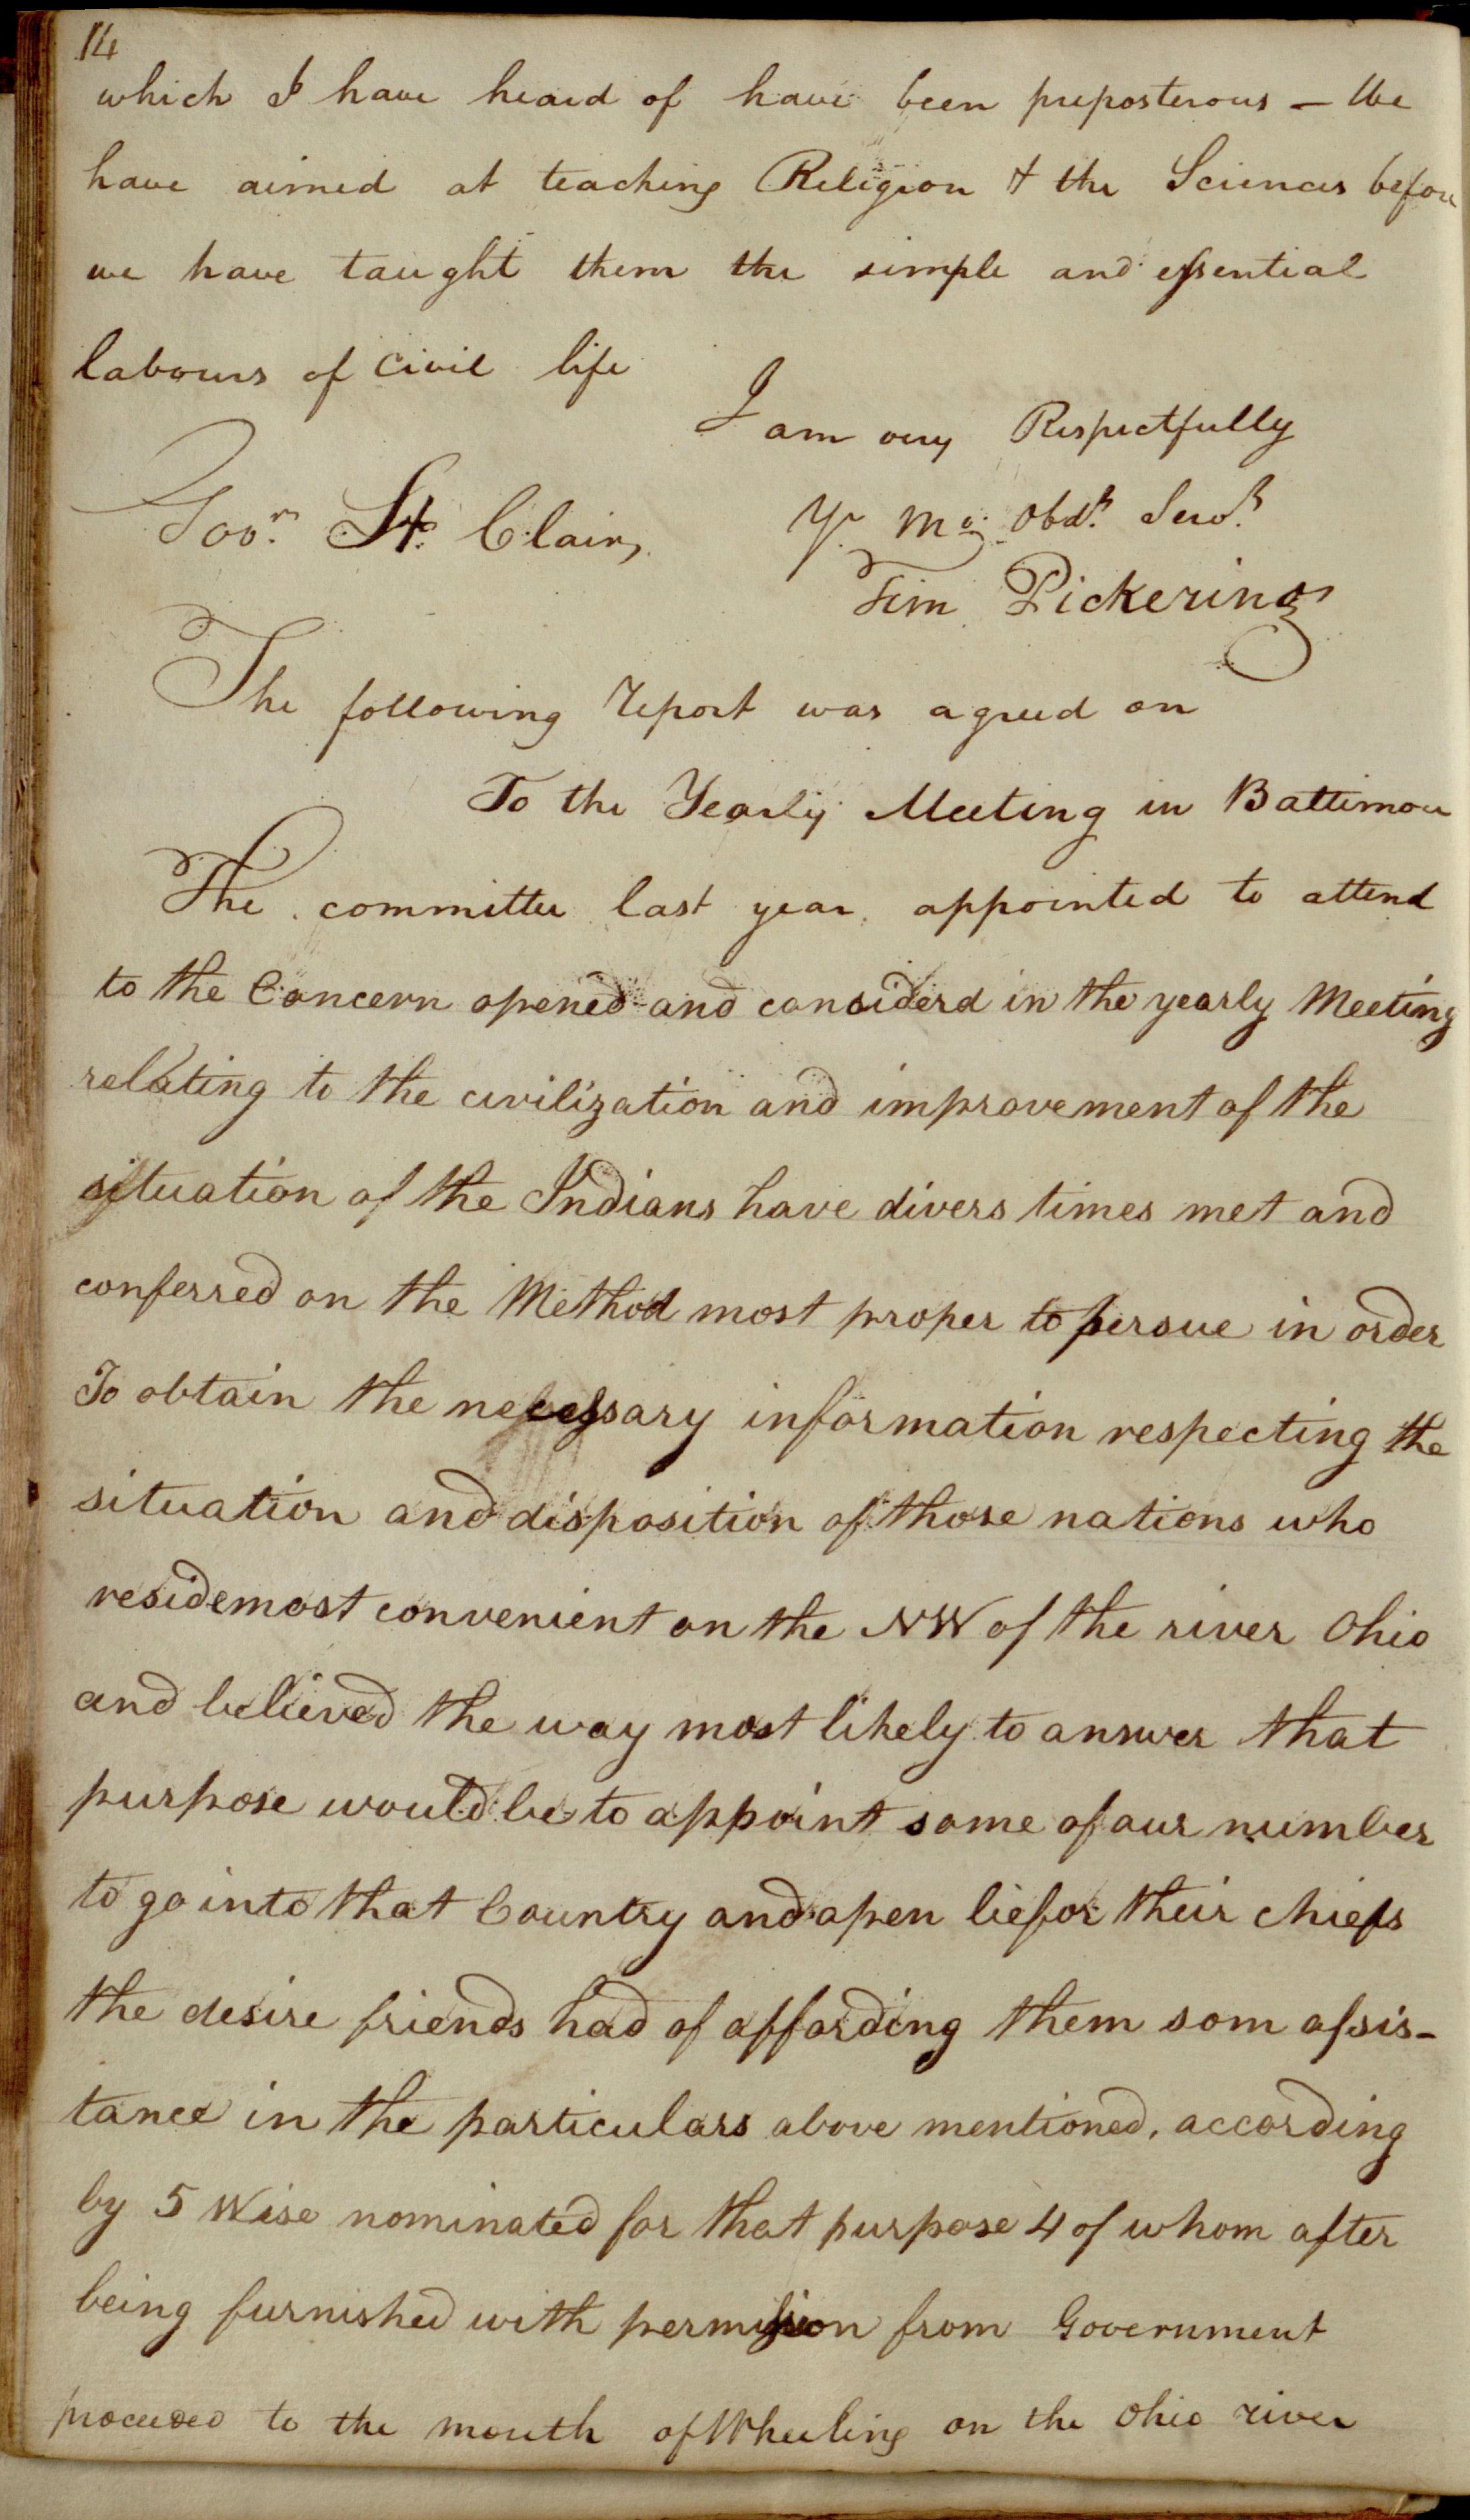 14
which I have heard of have been preposterous — We
have aimed at teaching Religion & the Sciences before
we have taught them the simple and essential
labours of civil life
I am very Respectfully
Govr. St. Clair,
Yr. Mo. Obdt. Servt.
Tim Pickering
The following report was agreed on
To the Yearly Meeting in Baltimore
The committee last year appointed to attend
to the Concern opened and considerd in the yearly Meeting
relating to the civilization and improvement of the
situation of the Indians have divers times met and
conferred on the Method most proper to persue in order
To obtain the necessary information respecting the
situation and disposition of those nations who
reside most convenient on the NW of the river Ohio
and believed the way most likely to answer that
purpose would be to appoint some of our number
to go into that Country and open befor their chiefs
the desire friends had of affording them som assis-
tance in the particulars above mentioned, according
by 5 Wise nominated for that purpose 4 of whom after
being furnished with permission from Government
proceeded to the mouth of Wheeling on the Ohio river